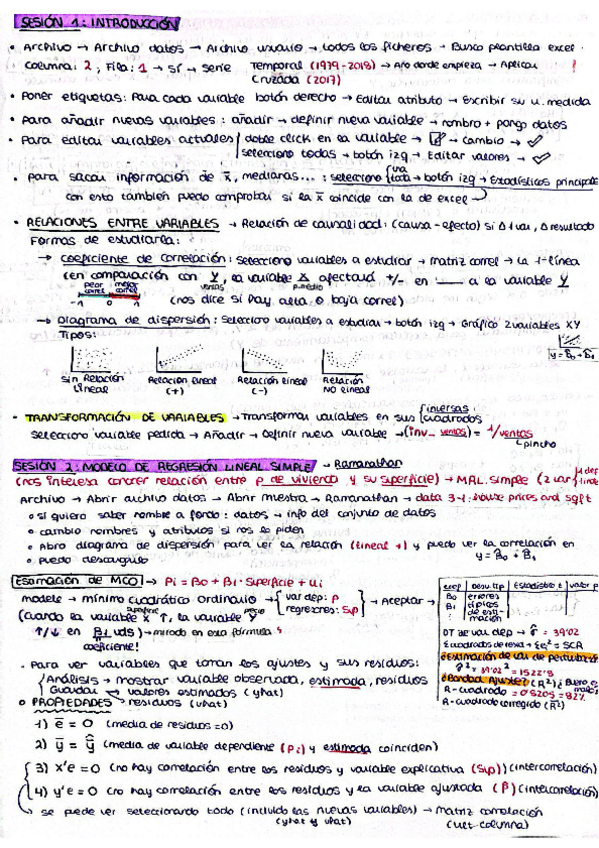 SESIÓN 1: INTRODUCCIÓN
• Archivo → Archivo datos → Archivo usuario → todos los ficheros → Busco plantilla excel
Columna: 2, Fila: 1 → Sí → Serie Temporal (1979-2018) → Año donde empieza → Aplicar
Cruzada (2017)
• Poner etiquetas: Para cada variable botón derecho → Editar atributo → Escribir su u. medida
• Para añadir nuevas variables: añadir → definir nueva variable → nombro + pongo datos
• Para editar variables actuales doble click en la variable → cambio →
selecciono todas → botón izq → Editar valores →
• Para sacar información de x̄, medianas...: selecciono una toda → botón izq → Estadísticos principales
con esto también puedo comprobar si la x̄ coincide con la de excel
• RELACIONES ENTRE VARIABLES → Relación de causalidad: (causa-efecto) si Δ var, Δ resultado
Formas de estudiarla:
→ coeficiente de correlación: selecciono variables a estudiar → matriz correl → la 1ª línea
(en comparación con Y, la variable X afectará +/- en ___ a la variable Y
ventas p.medio
peor correl mejor correl
-1 0 1 (nos dice si hay alta o baja correl)
→ Diagrama de dispersión: selecciono variables a estudiar → botón izq → Gráfico 2 variables XY
Tipos:
y = B₀ + B₁
Sin Relación Lineal Relación lineal (+) Relación lineal (-) Relación NO lineal
• TRANSFORMACIÓN DE VARIABLES → Transformar variables en sus inversas cuadrados
selecciono variable pedida → Añadir → Definir nueva variable → (inv_ventas) = 1/ventas
pincho
SESIÓN 2: MODELO DE REGRESIÓN LINEAL SIMPLE → Ramanathan
(nos interesa conocer relación entre p de vivienda y su superficie) → MRL simple (2 var
Archivo → Abrir archivo datos → Abrir muestra → Ramanathan → data 3-1: House prices and sqft
o si quiero saber nombre a fondo: datos → info del conjunto de datos
o cambio nombres y atributos si nos lo piden
o Abro diagrama de dispersión para ver la relación (lineal +) y puedo ver la correlación en
y = B₀ + B₁
o puedo descargarlo
Estimación de MCO → Pi = B₀ + B₁ · superficie + ui
modelo → mínimo cuadrático ordinario → var dep: p regresores: Sup → Aceptar →
(cuando la variable X ↑, la variable Y
superficie precio
↑/↓ en B₁ uds) → mirado en esta fórmula
coeficiente!
coef Desv. tip Estadístico t valor p
B₀ errores
B₁ típicos de estimación
DT de var dep → σ̂ = 39'02
Σ cuadrados de resid → Σe² = SCR
estimación de var de perturbación
σ̂² y 39'02² = 1522'8
Bondad Ajuste (R²)
R-cuadrado = 0'8205 = 82%
R-cuadrado corregido (R̄²)
• Para ver variables que toman los ajustes y sus residuos:
Análisis → mostrar variable observada, estimada, residuos
Guardar → valores estimados (yhat)
residuos (uhat)
o PROPIEDADES
1) ē = 0 (media de residuos = 0)
2) ȳ = ŷ (media de variable dependiente (Pi) y estimada coinciden)
3) x'e = 0 (no hay correlación entre los residuos y variable explicativa (Sup)) (intercorrelación)
4) y'e = 0 (no hay correlación entre los residuos y la variable ajustada (p̂) (intercorrelación)
→ se puede ver seleccionando todo (incluido las nuevas variables) → matriz correlación
(yhat y uhat) (ult-columna)